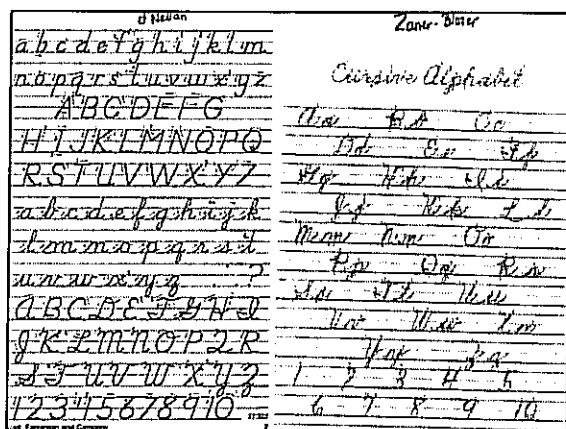 d'Nelian
a b c d e f g h i j k l m
n o p q r s t u v w x y z
A B C D E F G
H I J K L M N O P Q
R S T U V W X Y Z
a b c d e f g h i j k
l m n o p q r s t
u v w x y z . . . ?
A B C D E F G H I
J K L M N O P Q R
S T U V W X Y Z
1 2 3 4 5 6 7 8 9 10
Zaner-Bloser
Cursive Alphabet
Aa Bb Cc
Dd Ee Ff
Gg Hh Ii
Jj Kk Ll
Mm Nn Oo
Pp Qq Rr
Ss Tt Uu
Vv Ww Xx
Yy Zz
1 2 3 4 5
6 7 8 9 10